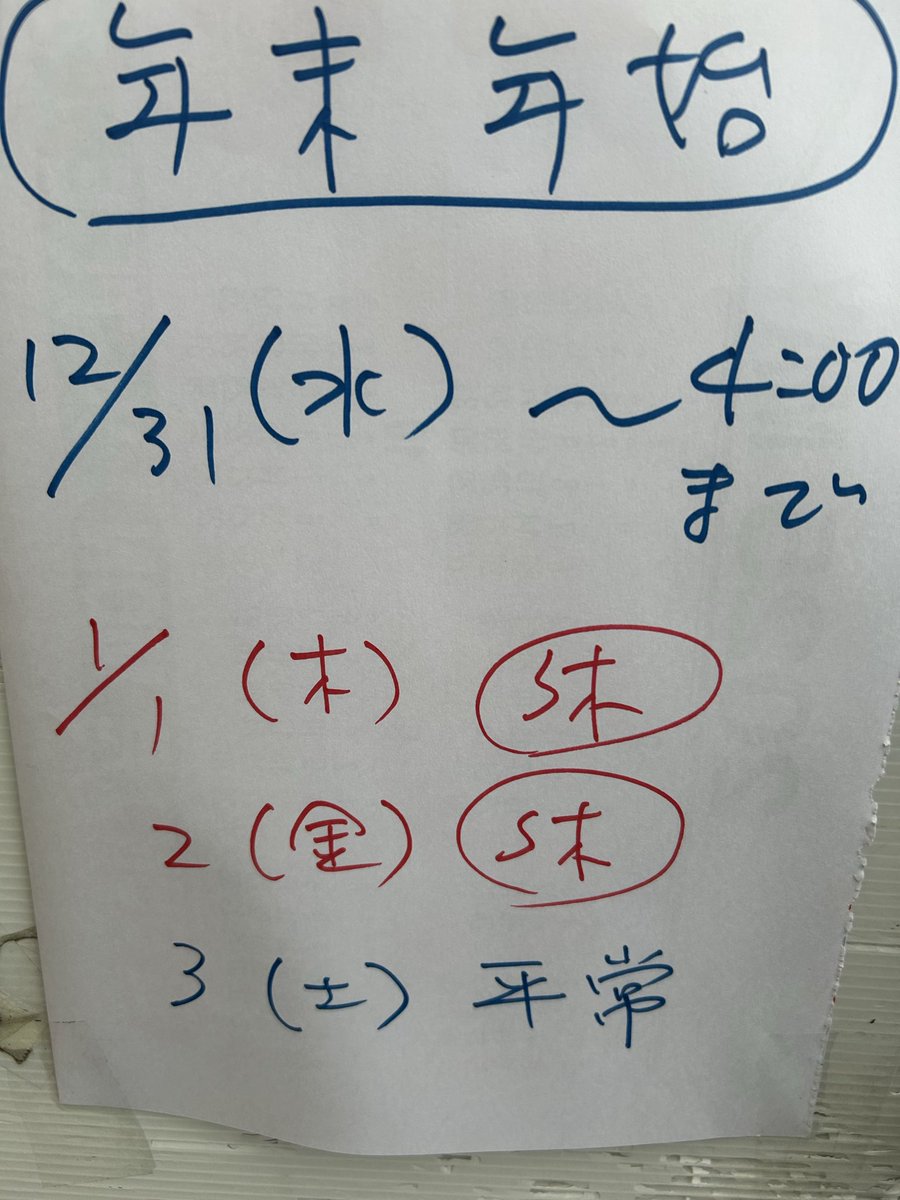 年末年始
12/31(水) ~4:00
まで
1/1 (木) 休
2 (金) 休
3 (土) 平常